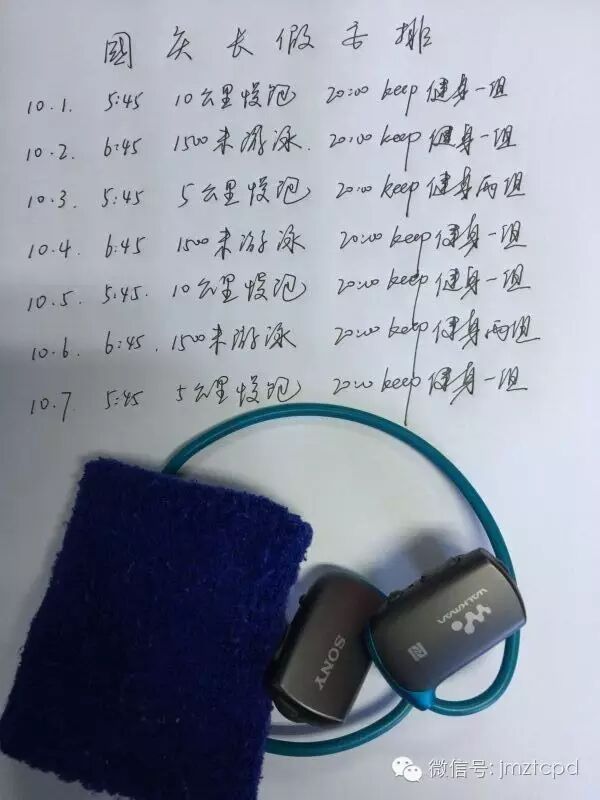 國庆长假安排
10.1. 5:45 10公里慢跑 20:00 keep健身一组
10.2. 6:45 1500米游泳. 20:00 keep健身一组
10.3. 5:45 5公里慢跑 20:00 keep健身两组
10.4. 6:45 1500米游泳 20:00 keep健身一组
10.5. 5:45. 10公里慢跑 20:00 keep健身一组
10.6. 6:45. 1500米游泳 20:00 keep健身两组
10.7. 5:45 5公里慢跑 20:00 keep健身一组
WALKMAN
SONY
N
微信号: jmztcpd